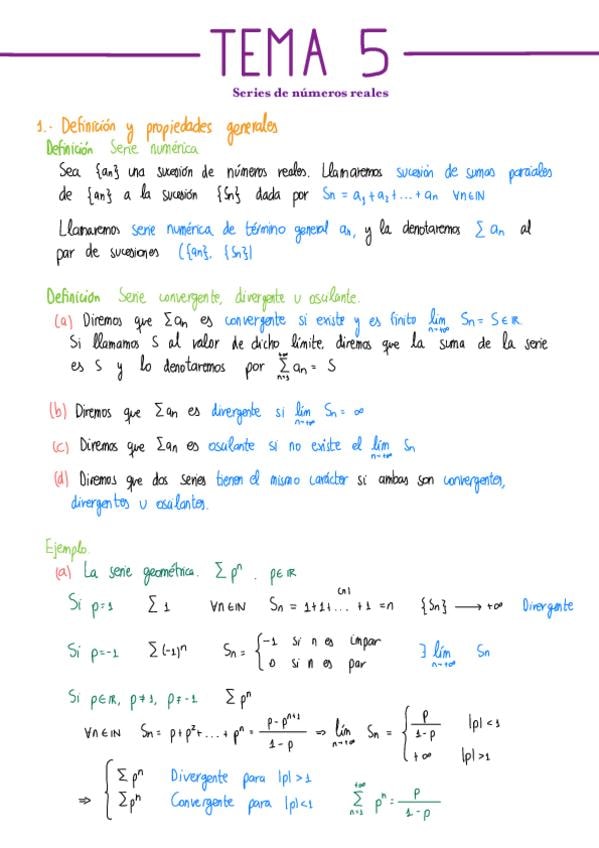 TEMA 5
Series de números reales
1.- Definición y propiedades generales
Definición Serie numérica
Sea {an} una sucesión de números reales. Llamaremos sucesión de sumas parciales
de {an} a la sucesión {Sn} dada por Sn = a₁+a₂+...+an ∀n∈ℕ
Llamaremos serie numérica de término general an, y la denotaremos ∑ an al
par de sucesiones ({an}, {Sn})
Definición Serie convergente, divergente u osculante.
(a) Diremos que ∑an es convergente si existe y es finito lím n→+∞ Sn = S∈ℝ
Si llamamos S al valor de dicho límite, diremos que la suma de la serie
es S y lo denotaremos por +∞∑n=1 an = S
(b) Diremos que ∑an es divergente si lím n→+∞ Sn = ∞
(c) Diremos que ∑an es osculante si no existe el lím n→+∞ Sn
(d) Diremos que dos series tienen el mismo carácter si ambas son convergentes,
divergentes u oscilantes.
Ejemplo.
(a) La serie geométrica. ∑pⁿ . p∈ℝ
Si p=1 ∑1 ∀n∈ℕ Sn = 1+1+...+1 = n {Sn} → +∞ Divergente
Si p=-1 ∑(-1)ⁿ Sn = { -1 si n es impar
0 si n es par ∃ lím n→+∞ Sn
Si p∈ℝ, p≠1, p≠-1 ∑pⁿ
∀n∈ℕ Sn = p+p²+...+pⁿ = (p-pⁿ⁺¹)/(1-p) ⇒ lím n→+∞ Sn = { p/(1-p) |p|<1
+∞ |p|>1
⇒ { ∑pⁿ Divergente para |p|>1
∑pⁿ Convergente para |p|<1 +∞∑n=1 pⁿ = p/(1-p)